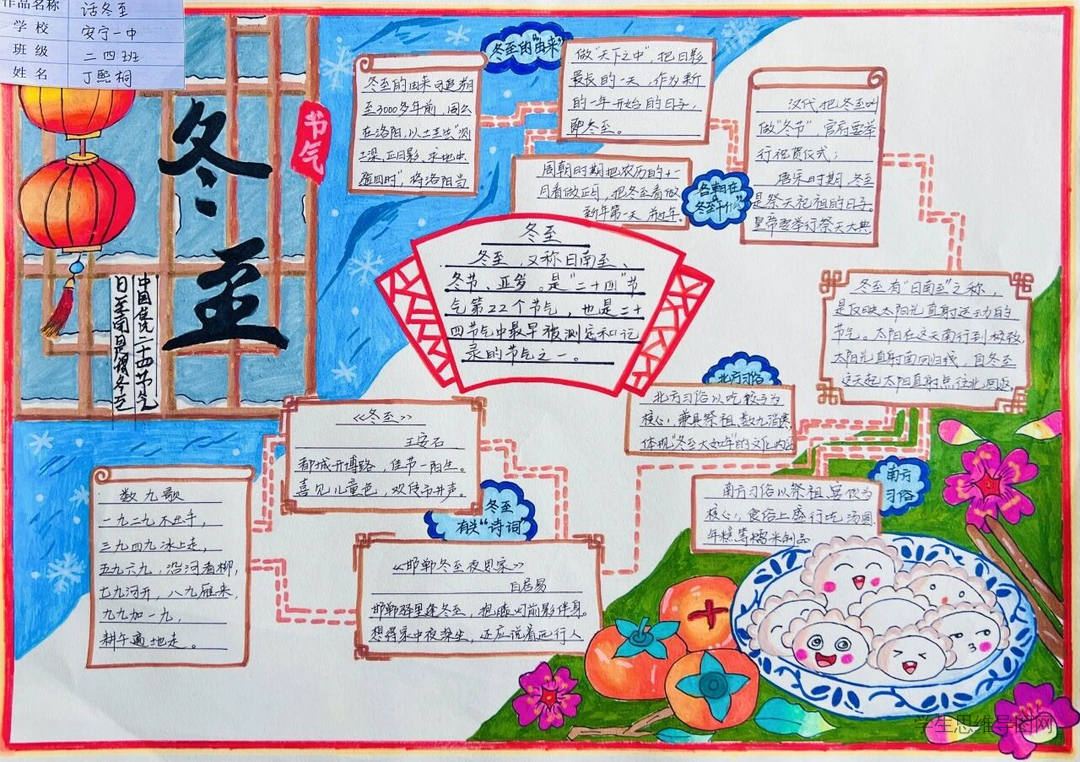 作品名称 话冬至
学校 安宁一中
班级 二四班
姓名 丁熙桐
冬至
节气
中国传统二十四节气
冬至的"由来"
冬至的由来可追溯
至3000多年前，周公
在洛阳，以土圭法"测
土深，正日影，求地中，
验四时"，将洛阳当
做"天下之中"，把日影
最长的一天，作为新
的一年开始的日子，
即冬至。
各朝在
冬至干什么
周朝时期把农历的十一
月看做正月，把冬至看做
新年第一天
汉代把冬至叫
做"冬节"，官府要举
行祝贺仪式；
唐宋时期，冬至
是祭天祀祖的日子。
皇帝要举行祭天大典
冬至
冬至，又称日南至、
冬节、亚岁。是"二十四"节
气第22个节气，也是二十
四节气中最早被测定和记
录的节气之一。
冬至有"日南至"之称，
是反映太阳光直射运动的
节气。太阳在这天南行到极致，
太阳光直射南回归线，自冬至
这天起太阳直射点往北回返
北方习俗
北方习俗以吃饺子为
核心，兼具祭祖、数九消寒，
体现"冬至大如年"的文化内涵
南方
习俗
南方习俗以祭祖、宴饮为
核心，食俗上盛行吃汤圆、
年糕等糯米制品
冬至
有关"诗词"
《冬至》
王安石
都城开博路，佳节一阳生。
喜见儿童色，欢传市井声。
《邯郸冬至夜思家》
白居易
邯郸驿里逢冬至，抱膝灯前影伴身。
想得家中夜深坐，还应说着远行人
数九歌
一九二九不出手，
三九四九冰上走，
五九六九，沿河看柳，
七九河开，八九雁来，
九九加一九，
耕牛遍地走。
学生思维导图网